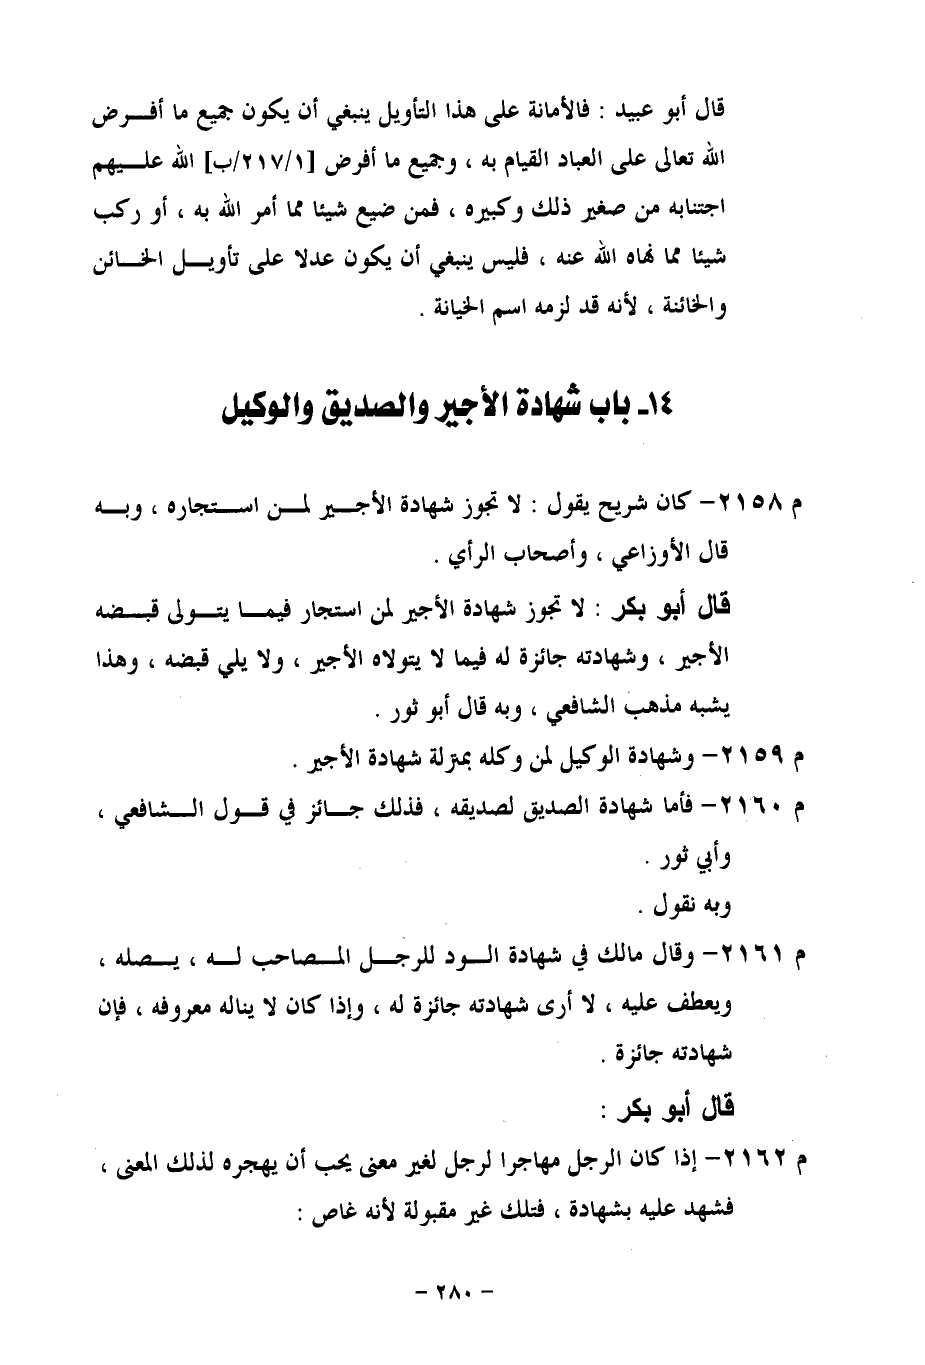 قال أبو عبيد : فالأمانة على هذا التأويل ينبغي أن يكون جميع ما أفرض
الله تعالى على العباد القيام به ، وجميع ما أفرض [٢١٧/١/ب] الله عليهم
اجتنابه من صغير ذلك وكبيره ، فمن ضيع شيئا مما أمر الله به ، أو ركب
شيئا مما نهاه الله عنه ، فليس ينبغي أن يكون عدلا على تأويل الخائن
والخائنة ، لأنه قد لزمه اسم الخيانة .
١٤ـ باب شهادة الأجير والصديق والوكيل
م ٢١٥٨– كان شريح يقول : لا تجوز شهادة الأجير لمن استجاره ، وبه
قال الأوزاعي ، وأصحاب الرأي .
قال أبو بكر : لا تجوز شهادة الأجير لمن استجار فيما يتولى قبضه
الأجير ، وشهادته جائزة له فيما لا يتولاه الأجير ، ولا يلي قبضه ، وهذا
يشبه مذهب الشافعي ، وبه قال أبو ثور .
م ٢١٥٩– وشهادة الوكيل لمن وكله بمنزلة شهادة الأجير .
م ٢١٦٠– فأما شهادة الصديق لصديقه ، فذلك جائز في قول الشافعي ،
وأبي ثور .
وبه نقول .
م ٢١٦١– وقال مالك في شهادة الود للرجل المصاحب له ، يصله ،
ويعطف عليه ، لا أرى شهادته جائزة له ، وإذا كان لا يناله معروفه ، فإن
شهادته جائزة .
قال أبو بكر :
م ٢١٦٢– إذا كان الرجل مهاجرا لرجل لغير معنى يحب أن يهجره لذلك المعنى ،
فشهد عليه بشهادة ، فتلك غير مقبولة لأنه غاص :
– ٢٨٠ –